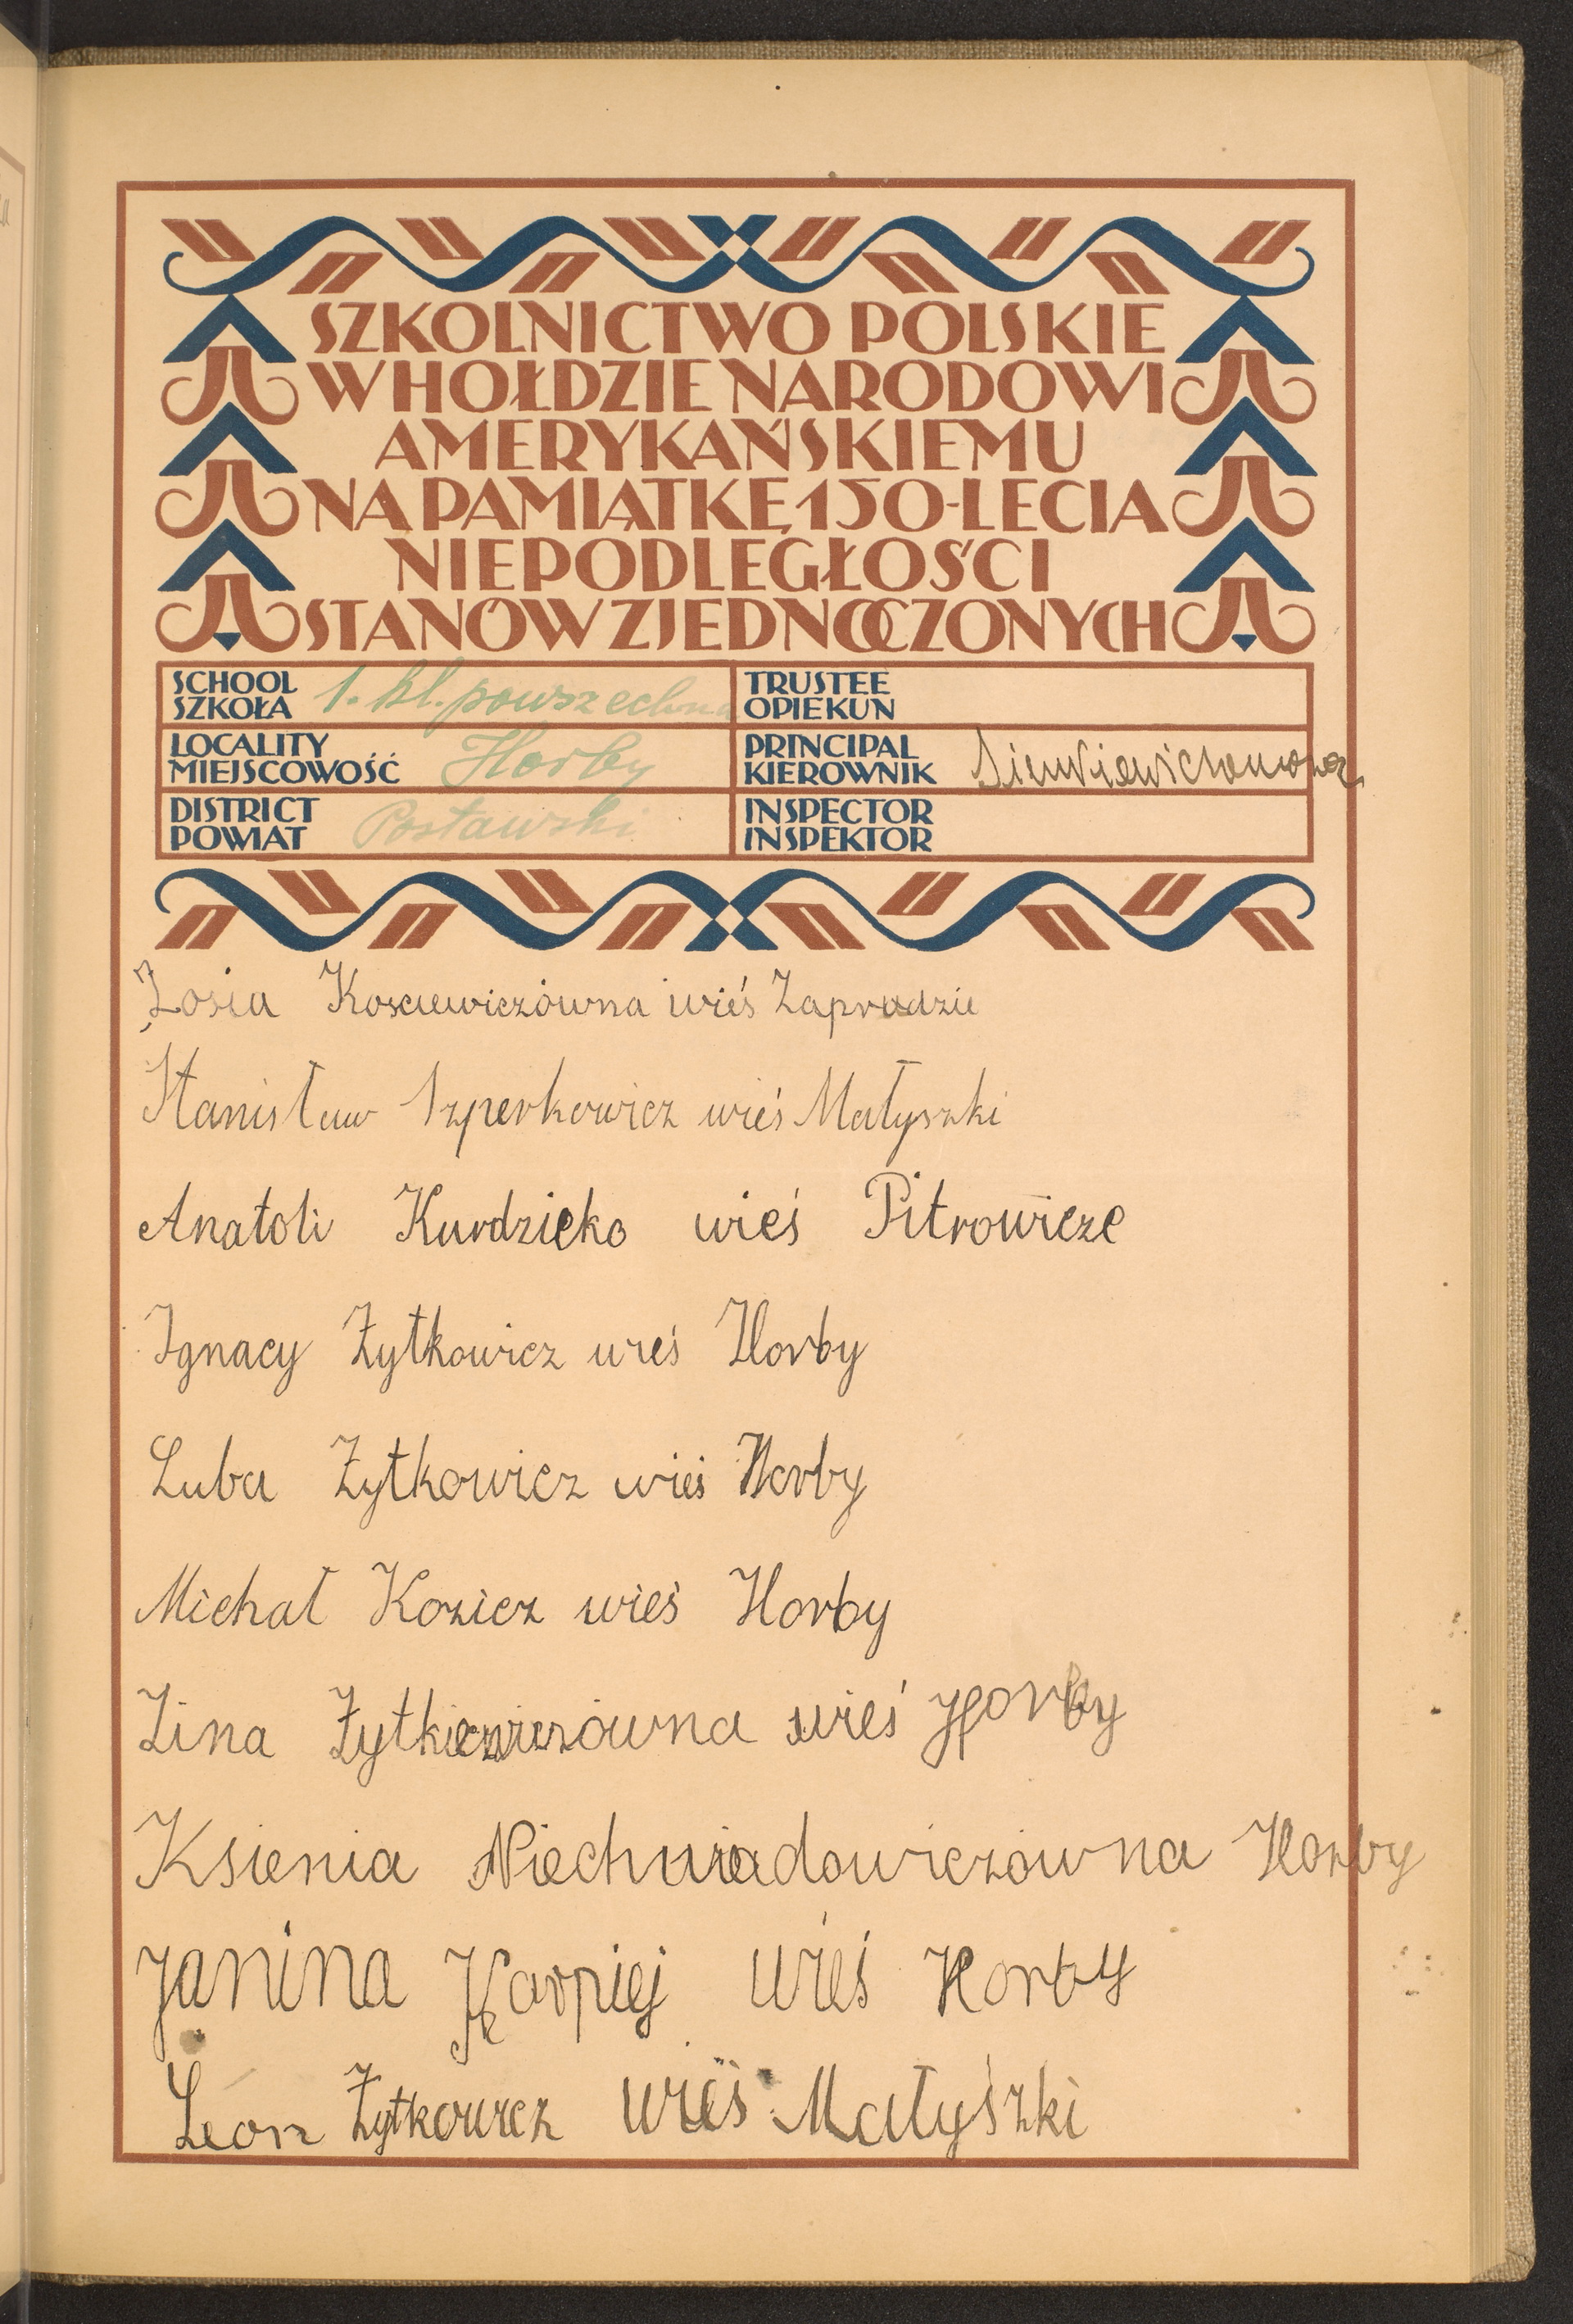 SZKOLNICTWO POLSKIE
W HOŁDZIE NARODOWI
AMERYKAŃSKIEMU
NA PAMIĄTKĘ 150-LECIA
NIEPODLEGŁOŚCI
STANÓW ZJEDNOCZONYCH
SCHOOL
SZKOŁA 1. kl. powszechna
TRUSTEE
OPIEKUN
LOCALITY
MIEJSCOWOŚĆ Horby
PRINCIPAL
KIEROWNIK
DISTRICT
POWIAT Postawski
INSPECTOR
INSPEKTOR
Zosia Kosciewiczówna wieś Zaprudzie
Stanisław Szperkowicz wieś Małyszki
Anatoli Kurdzieko wieś Pitrowicze
Ignacy Żytkowicz wieś Horby
Luba Żytkowicz wieś Horby
Michał Kozicz wieś Horby
Zina Żytkiewiczówna wieś Horby
Ksienia Niechwiadowiczówna Horby
Janina Karpiej wieś Horby
Leon Żytkowicz wieś Małyszki